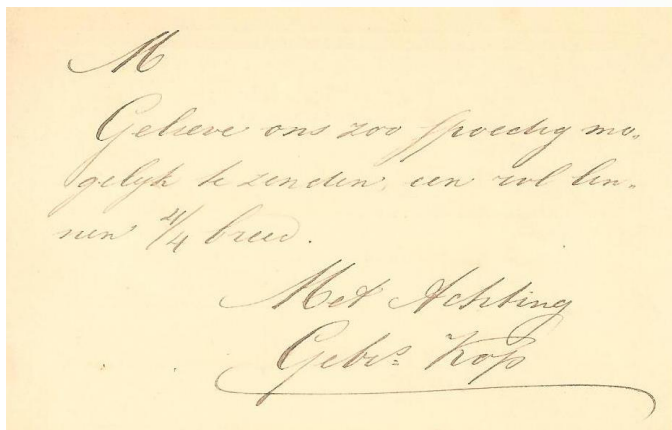 M
Gelieve ons zoo spoedig mo-
gelijk te zenden, een rol lin-
nen 4/4 breed.
Met Achting
Gebrs. Kop